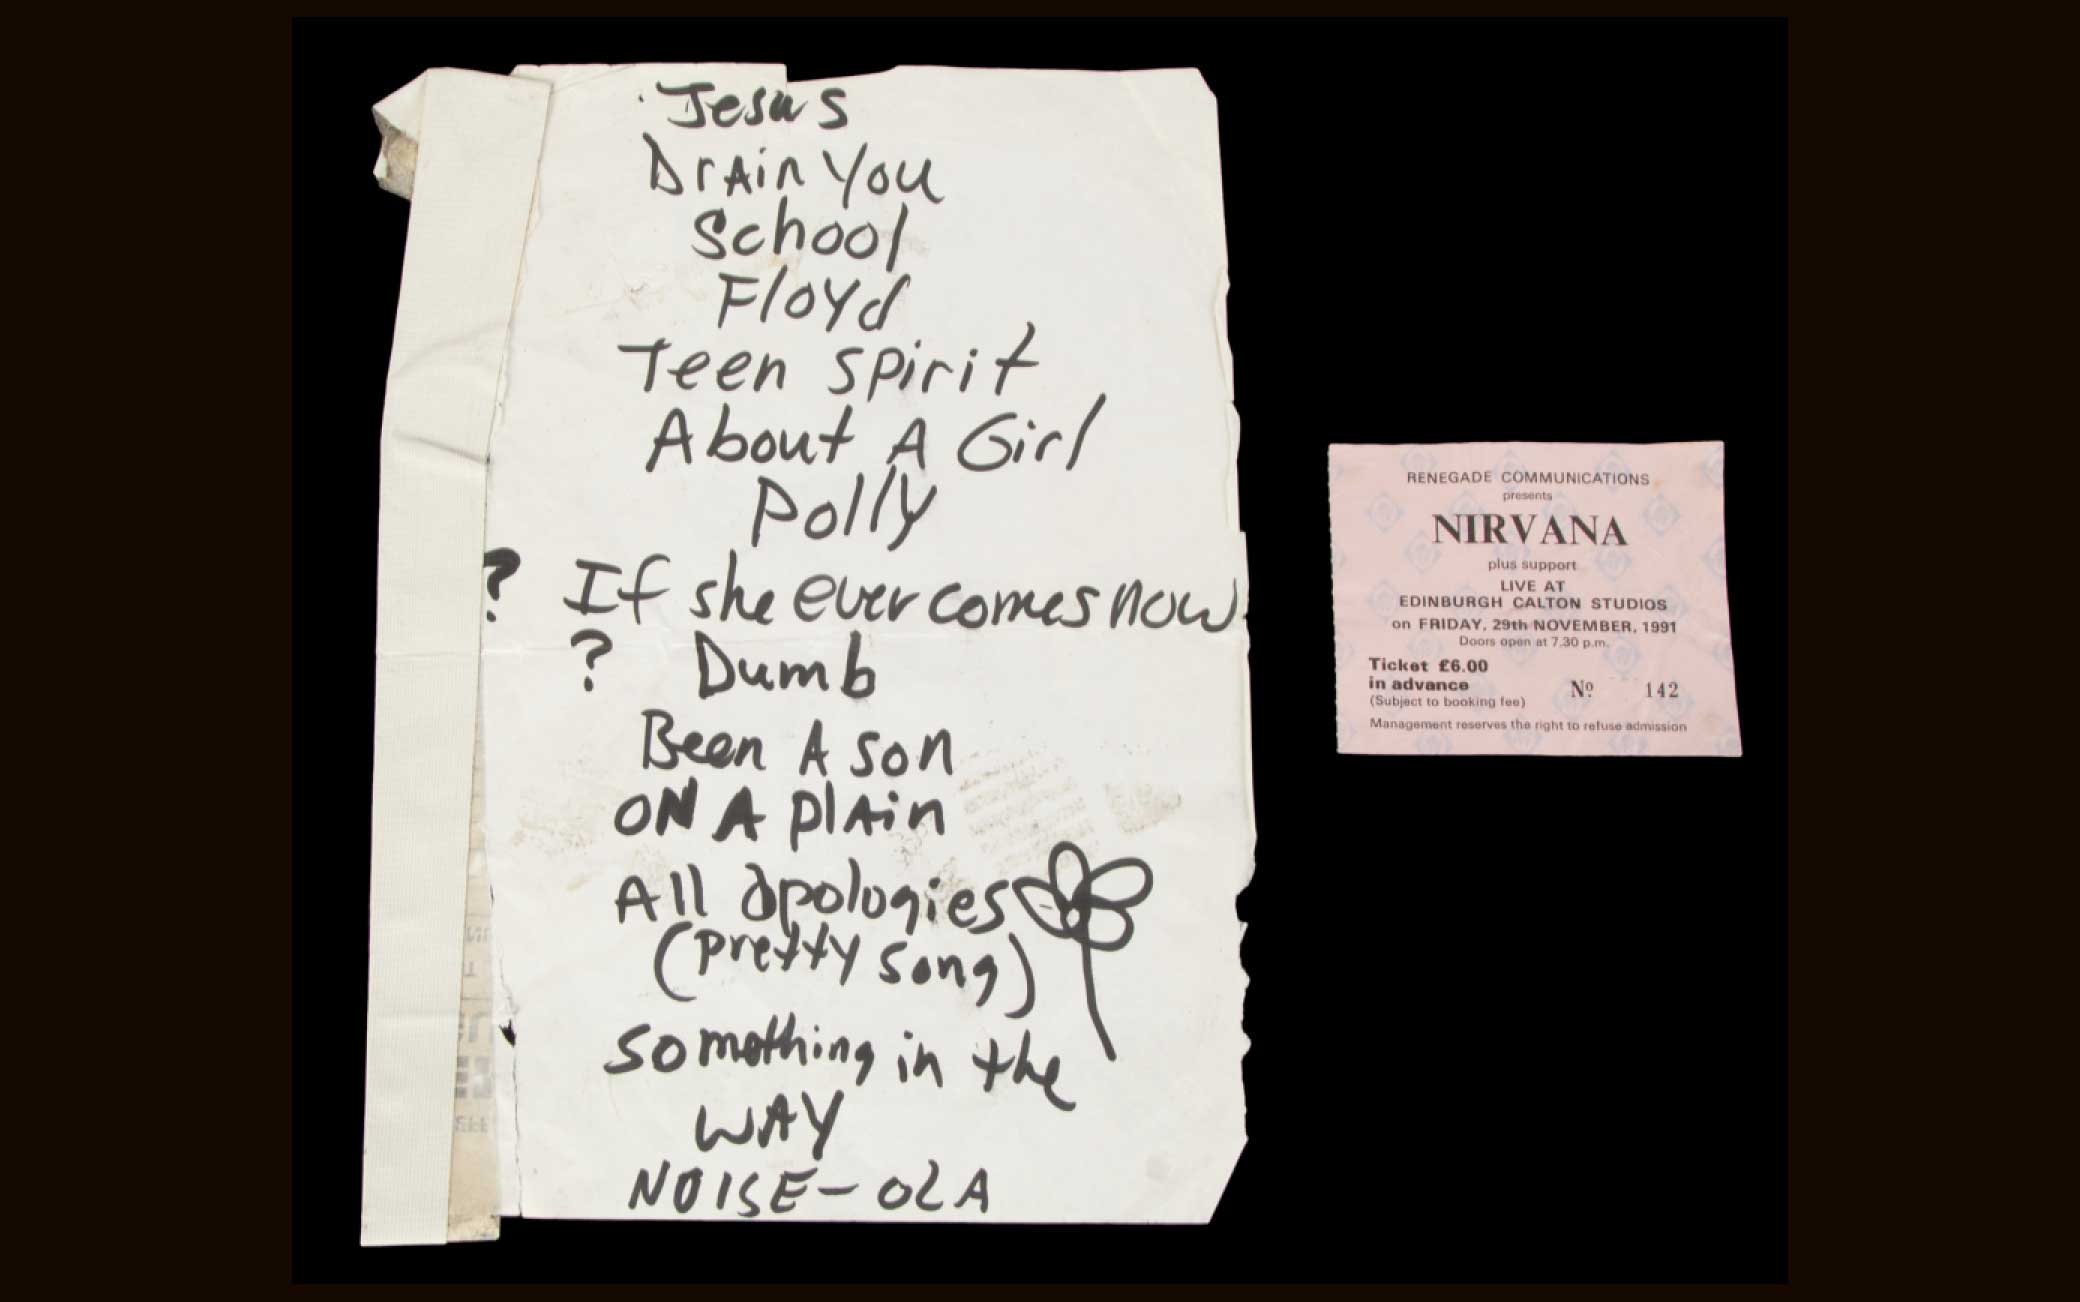 Jesus
Drain You
School
Floyd
Teen Spirit
About A Girl
Polly
? If she ever comes now
? Dumb
Been A son
ON A plAin
All apologies
(pretty song)
something in the
WAY
NOISE-OLA
RENEGADE COMMUNICATIONS
presents
NIRVANA
plus support
LIVE AT
EDINBURGH CALTON STUDIOS
on FRIDAY, 29th NOVEMBER, 1991
Doors open at 7.30 p.m.
Ticket £6.00
in advance
Nº 142
(Subject to booking fee)
Management reserves the right to refuse admission